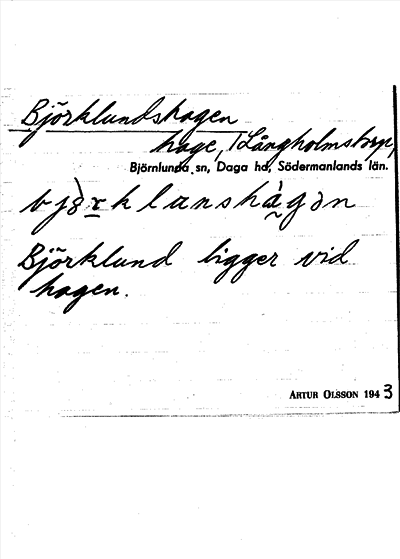 Björklundshagen
hage, Långholmstorp,
Björnlunda sn, Daga hd, Södermanlands län.
bjö̀rklanshá̰gən
Björklund ligger vid
hagen.
ARTUR OLSSON 1943